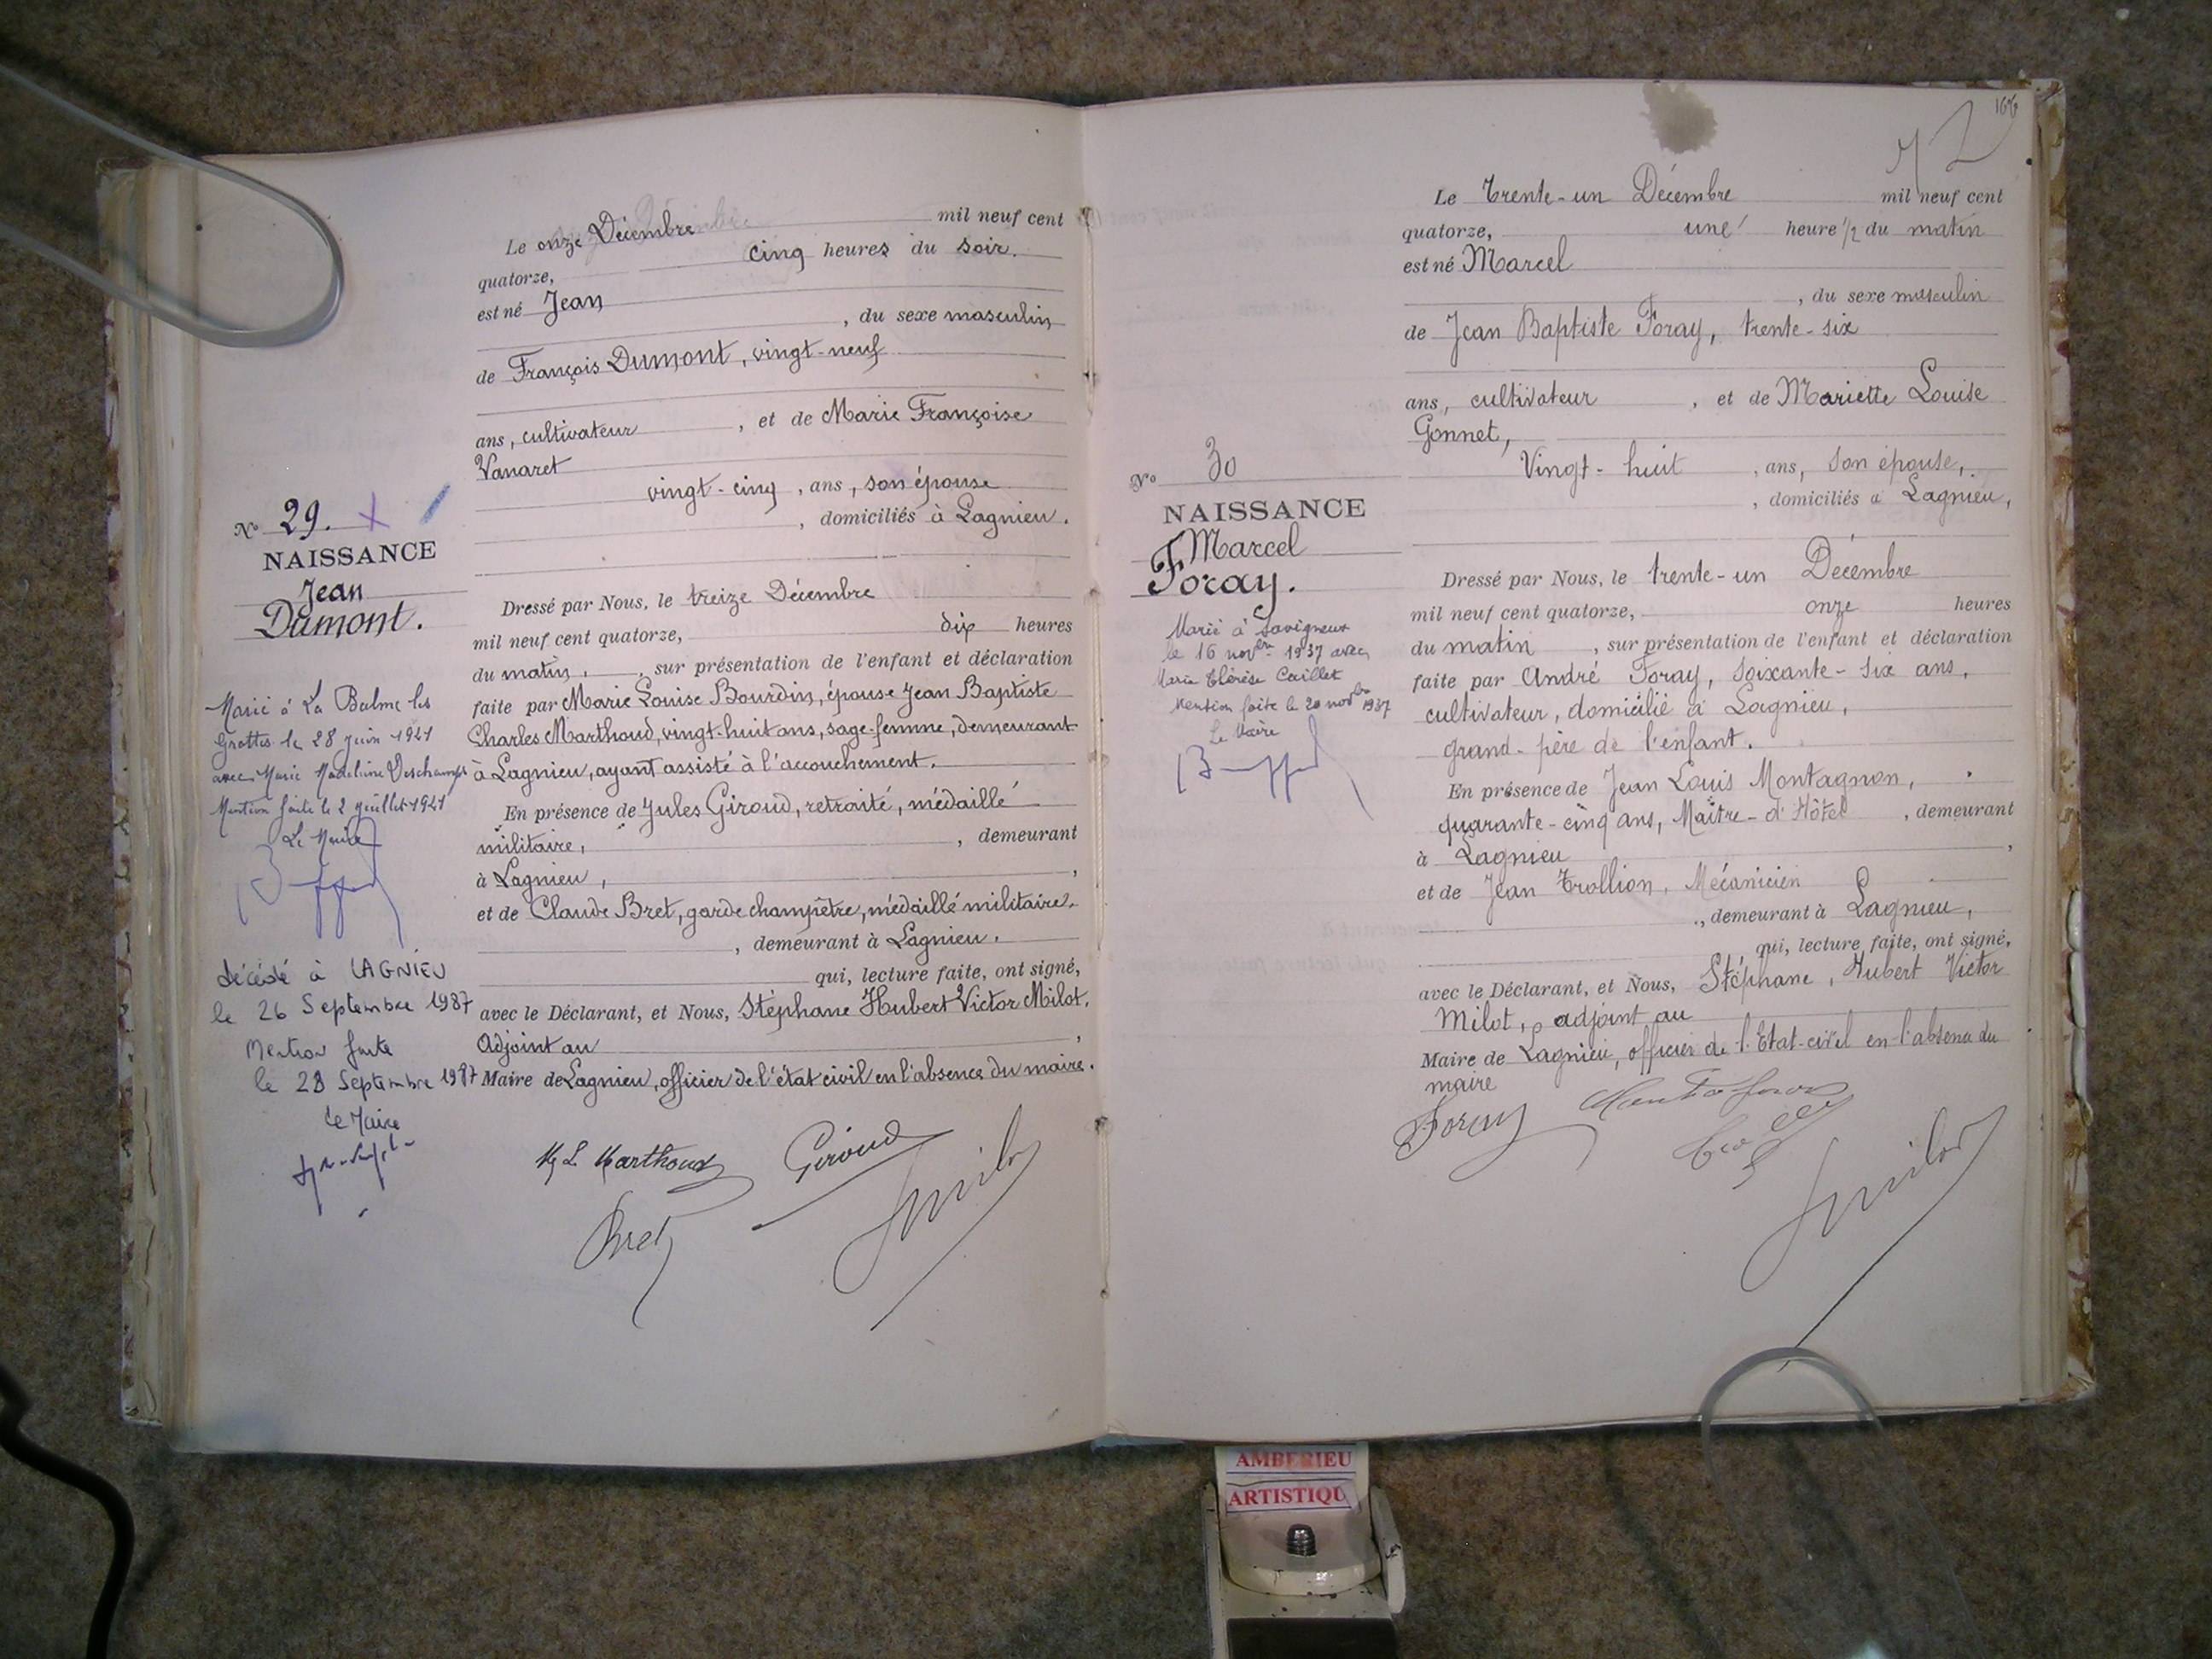 Le onze Décembre mil neuf cent
quatorze, cinq heures du soir.
est né Jean
, du sexe masculin
de François Dumont, vingt-neuf
ans, cultivateur , et de Marie Françoise
Vanaret
vingt-cinq , ans, son épouse
, domiciliés à Lagnieu.
No 29.
NAISSANCE
Jean
Dumont.
Dressé par Nous, le treize Décembre
mil neuf cent quatorze, dix heures
du matin, , sur présentation de l'enfant et déclaration
faite par Marie Louise Bourdin, épouse Jean Baptiste
Charles Marthoud, vingt-huit ans, sage-femme, demeurant
à Lagnieu, ayant assisté à l'accouchement.
En présence de Jules Giroud, retraité, médaillé
militaire, , demeurant
à Lagnieu, ,
et de Claude Bret, garde champêtre, médaillé militaire.
, demeurant à Lagnieu.
qui, lecture faite, ont signé,
avec le Déclarant, et Nous, Stéphane Hubert Victor Milot,
Adjoint au ,
Maire de Lagnieu, officier de l'état civil en l'absence du maire.
Marié à La Balme les
Grottes le 28 juin 1941
avec Marie Madeleine Deschamps
Mention faite le 2 juillet 1941
Le Maire
décédé à LAGNIEU
le 26 Septembre 1987
Mention faite
le 28 Septembre 1987
Le Maire
M L Marthoud Giroud
Bret Milot
166
72
Le trente-un Décembre mil neuf cent
quatorze, une heure 1/2 du matin
est né Marcel
, du sexe masculin
de Jean Baptiste Foray, trente-six
ans, cultivateur , et de Mariette Louise
Gonnet,
Vingt-huit , ans, son épouse,
, domiciliés à Lagnieu,
No 30
NAISSANCE
Marcel
Foray.
Marié à Savigneux
le 16 novbre 1937 avec
Marie Thérèse Caillet
Mention faite le 20 novbre 1937
Le Maire
Dressé par Nous, le trente-un Décembre
mil neuf cent quatorze, onze heures
du matin , sur présentation de l'enfant et déclaration
faite par André Foray, soixante-six ans,
cultivateur, domicilié à Lagnieu,
grand-père de l'enfant.
En présence de Jean Louis Montagnon,
quarante-cinq ans, Maître-d'Hôtel , demeurant
à Lagnieu ,
et de Jean Trollion, Mécanicien
, demeurant à Lagnieu,
qui, lecture faite, ont signé,
avec le Déclarant, et Nous, Stéphane, Hubert Victor
Milot, adjoint au
Maire de Lagnieu, officier de l'Etat-civil en l'absence du
maire
Foray
Milot
AMBERIEU
ARTISTIQU